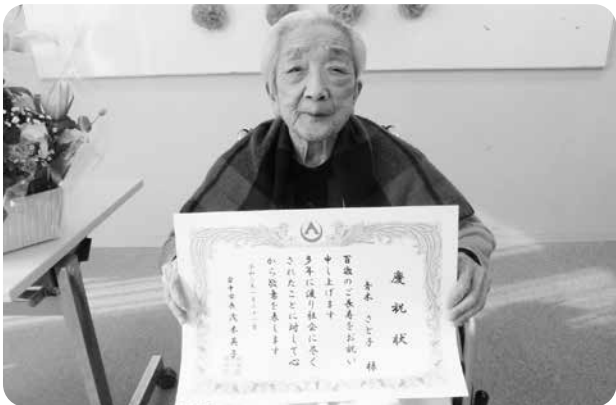 慶祝状
青木 さと子 様
百歳のご長寿をお祝い
申し上げます
多年に渡り社会に尽く
されたことに対して心
から敬意を表します
安中市長 茂木英子